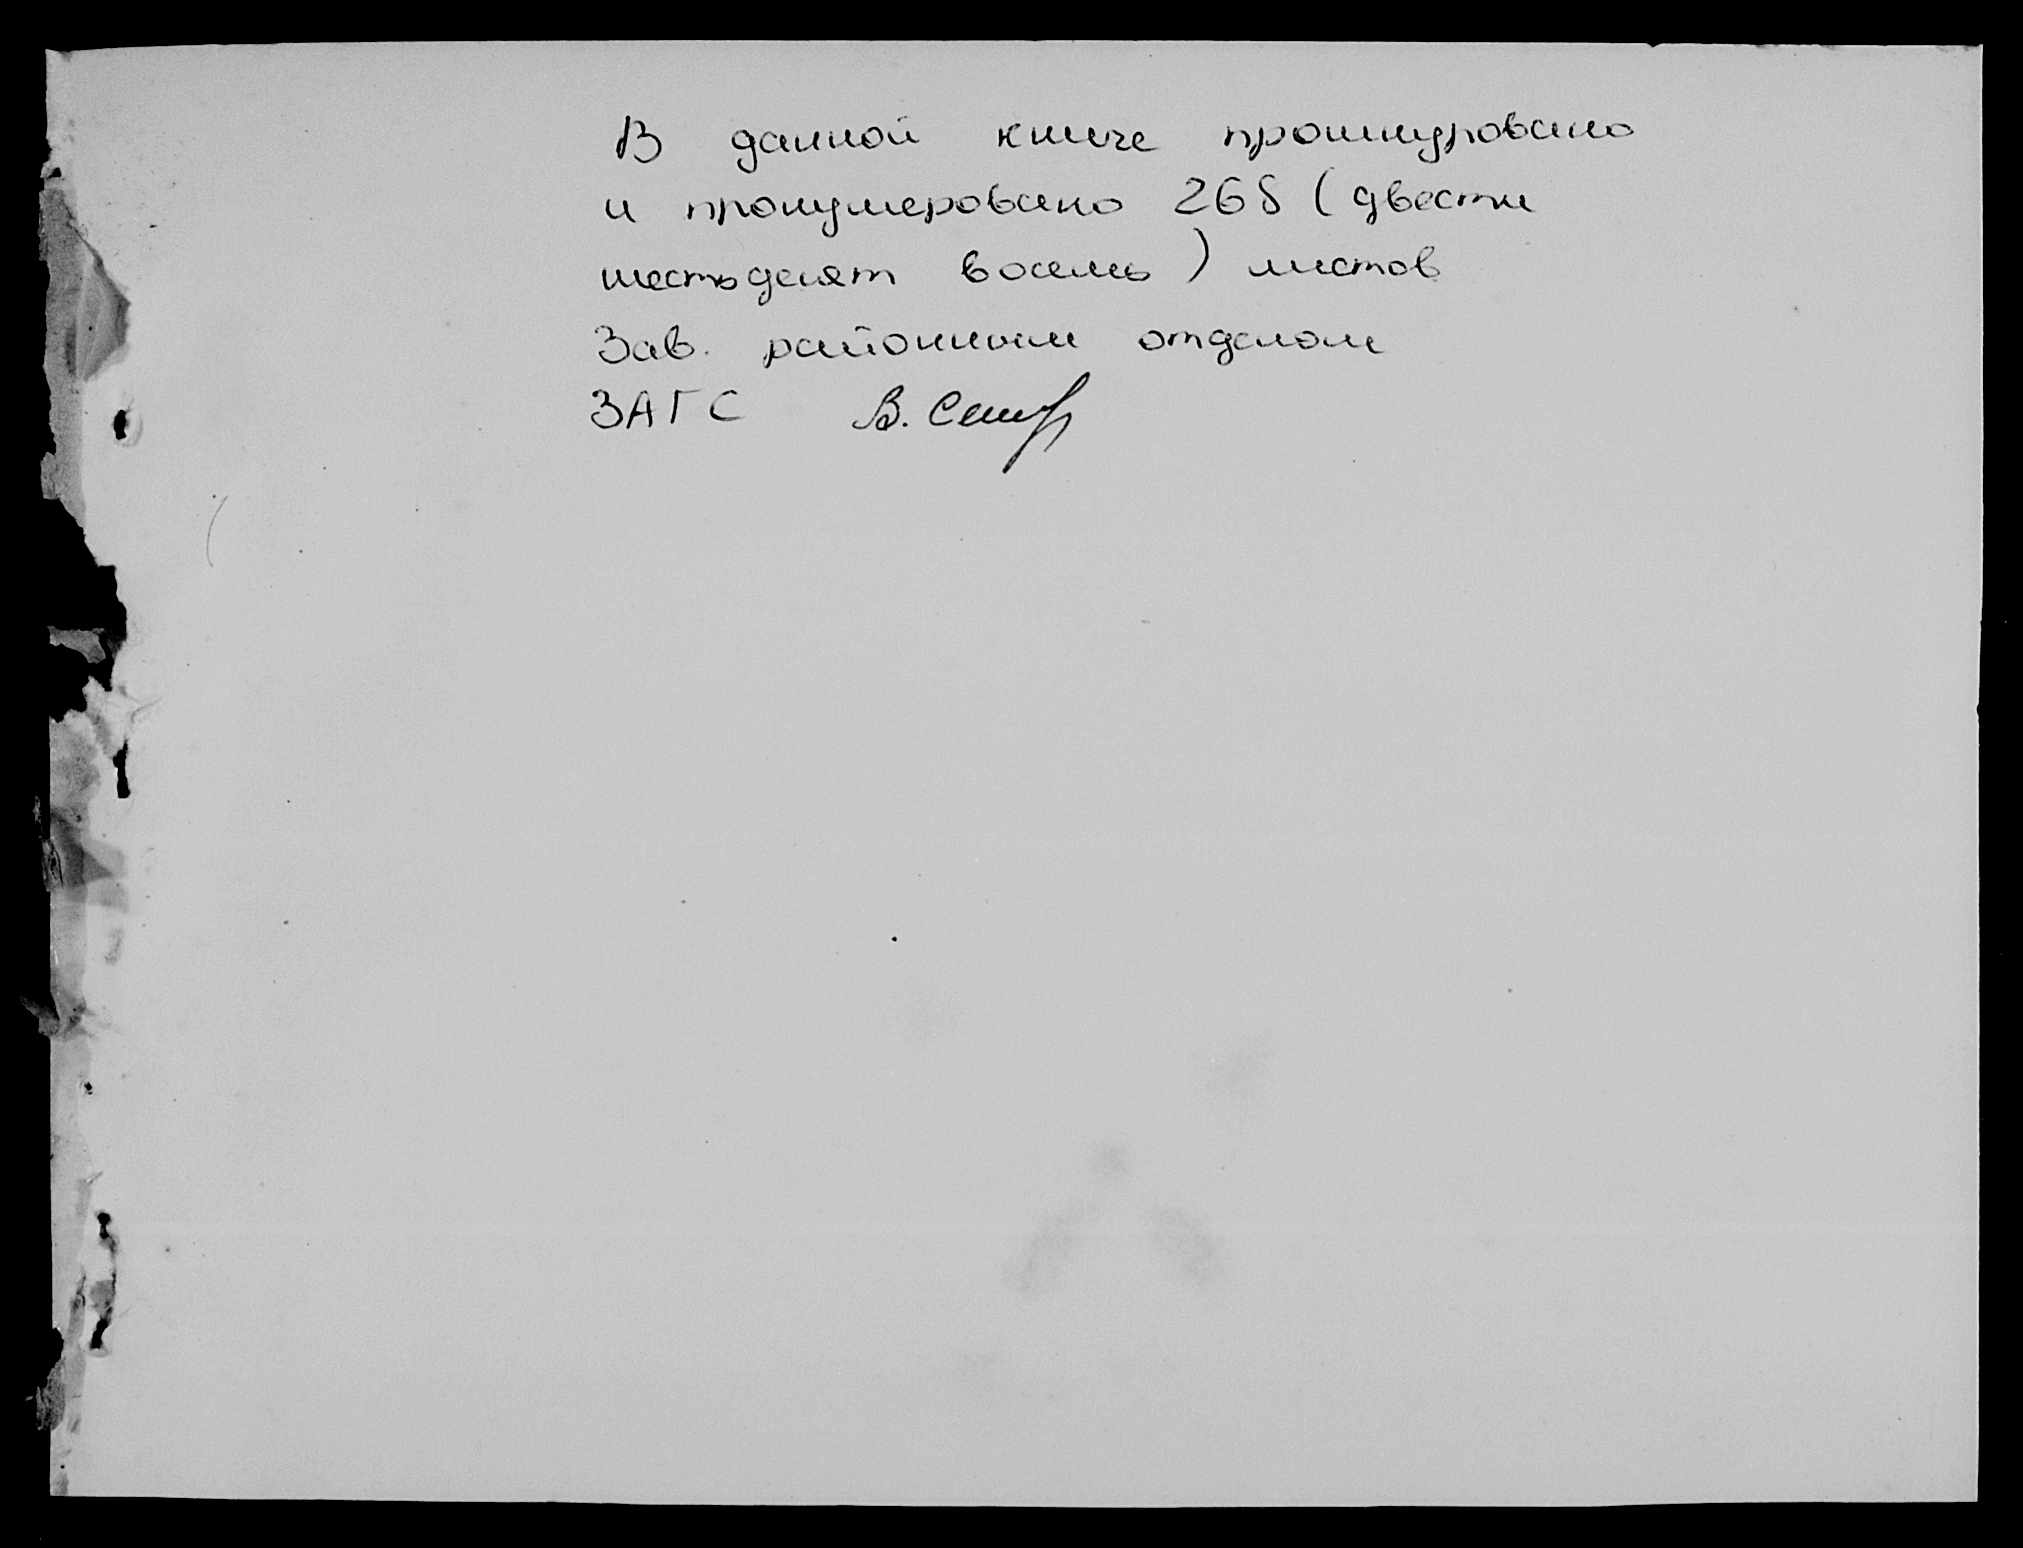 В данной книге прошнуровано
и пронумеровано 268 (двести
шестьдесят восемь) листов
Зав. районным отделом
ЗАГС В.